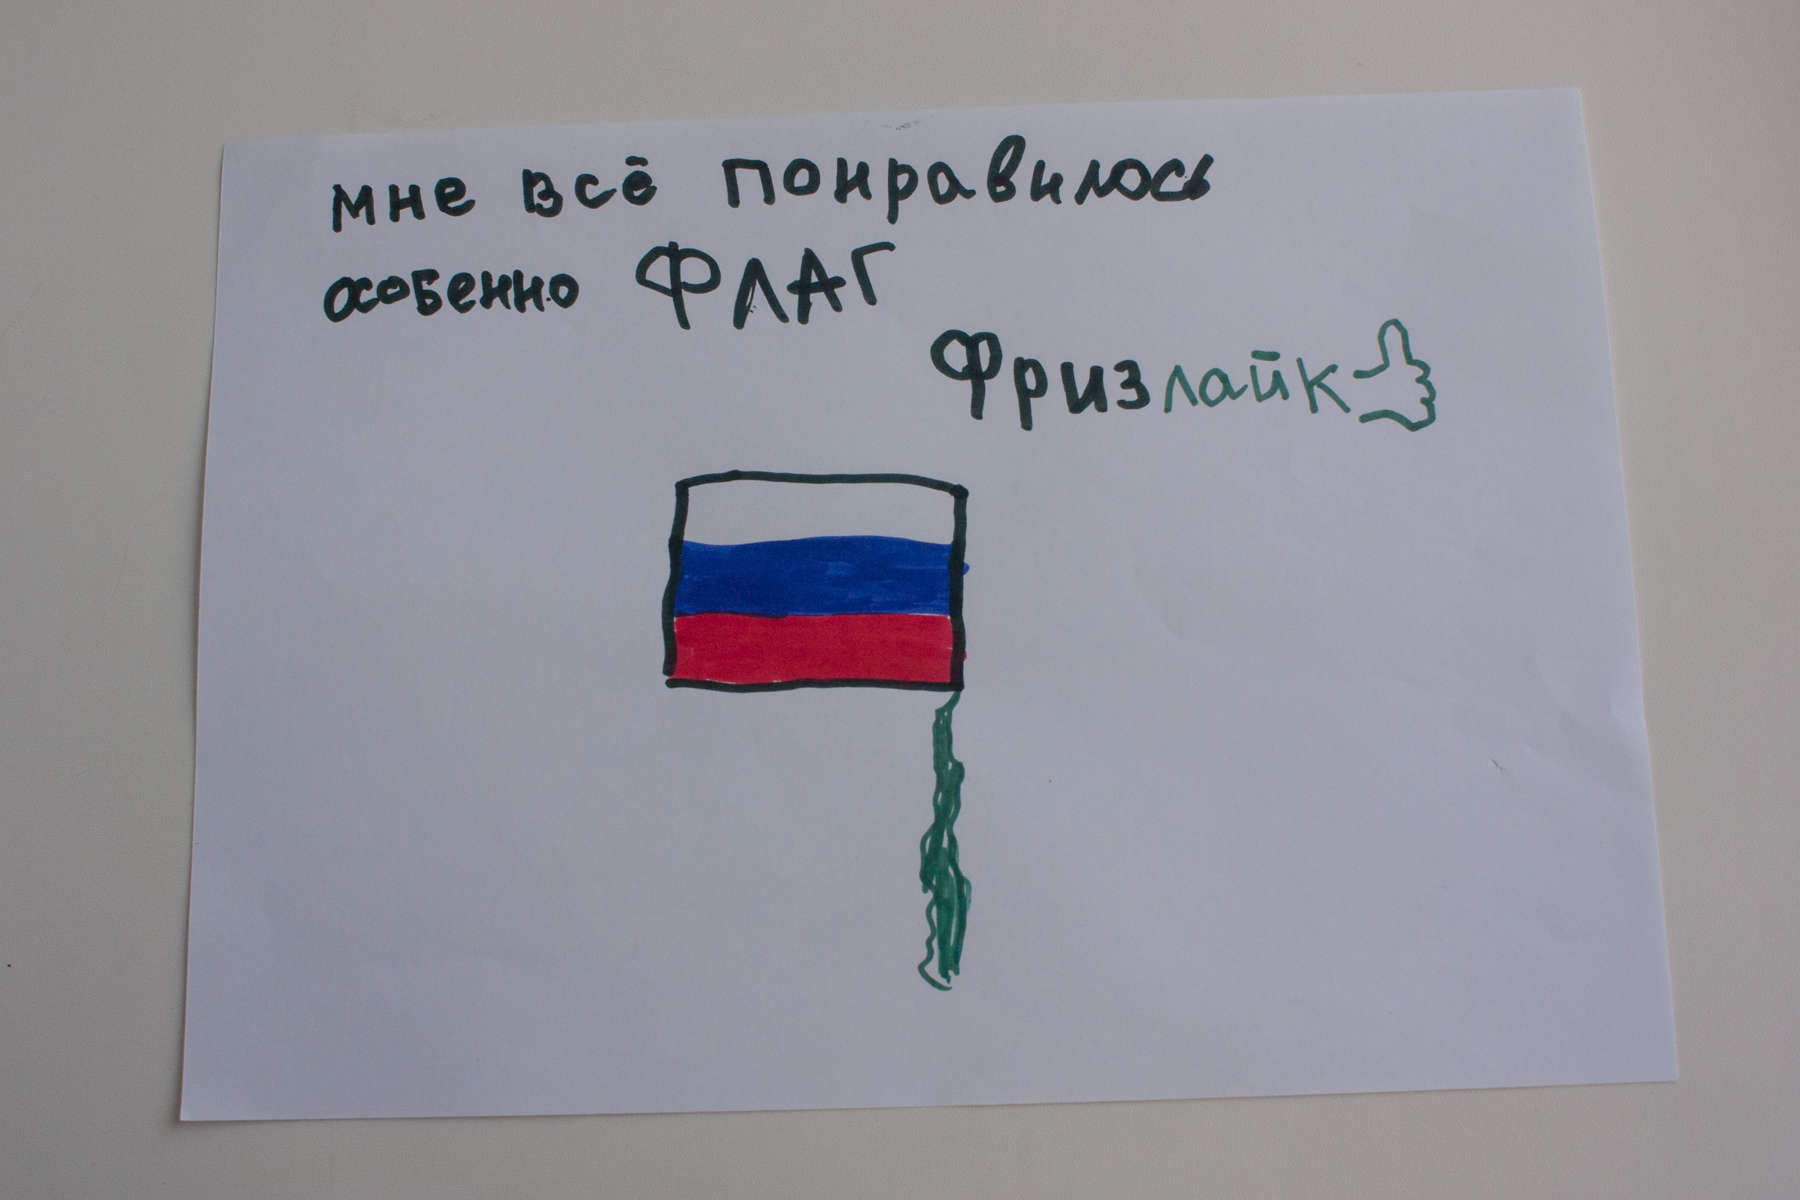 мне всё понравилось
особенно ФЛАГ
Фризлайк